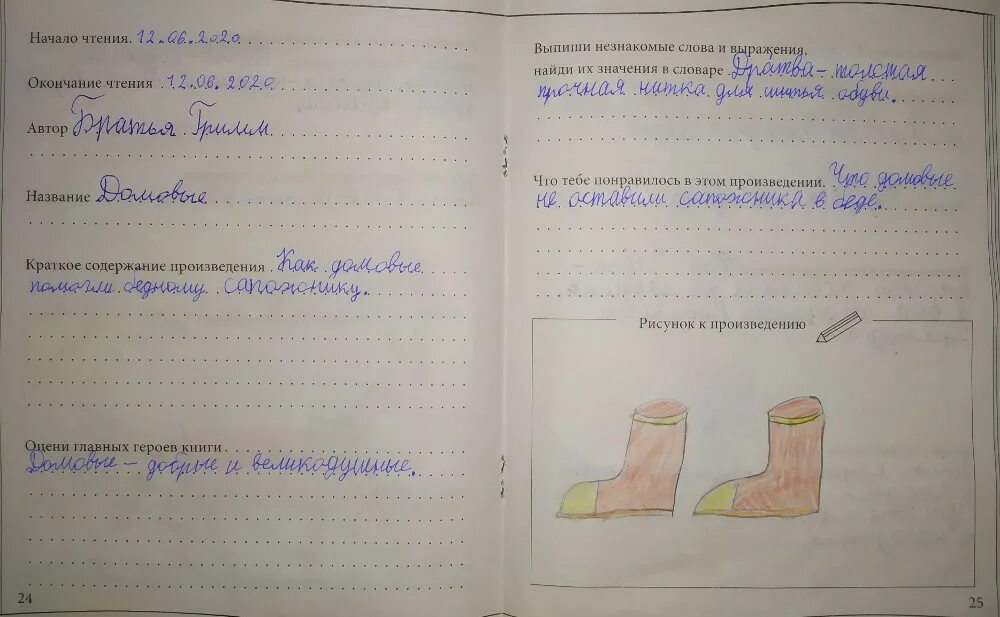 Начало чтения. 12.06.2020
Окончание чтения 12.06.2020
Автор Братья Гримм
Название Домовые
Краткое содержание произведения Как домовые
помогли бедному сапожнику.
Оцени главных героев книги
Домовые – добрые и великодушные.
24
Выпиши незнакомые слова и выражения,
найди их значения в словаре Дратва – толстая
прочная нитка для шитья обуви.
Что тебе понравилось в этом произведении. Что домовые
не оставили сапожника в беде.
Рисунок к произведению
25